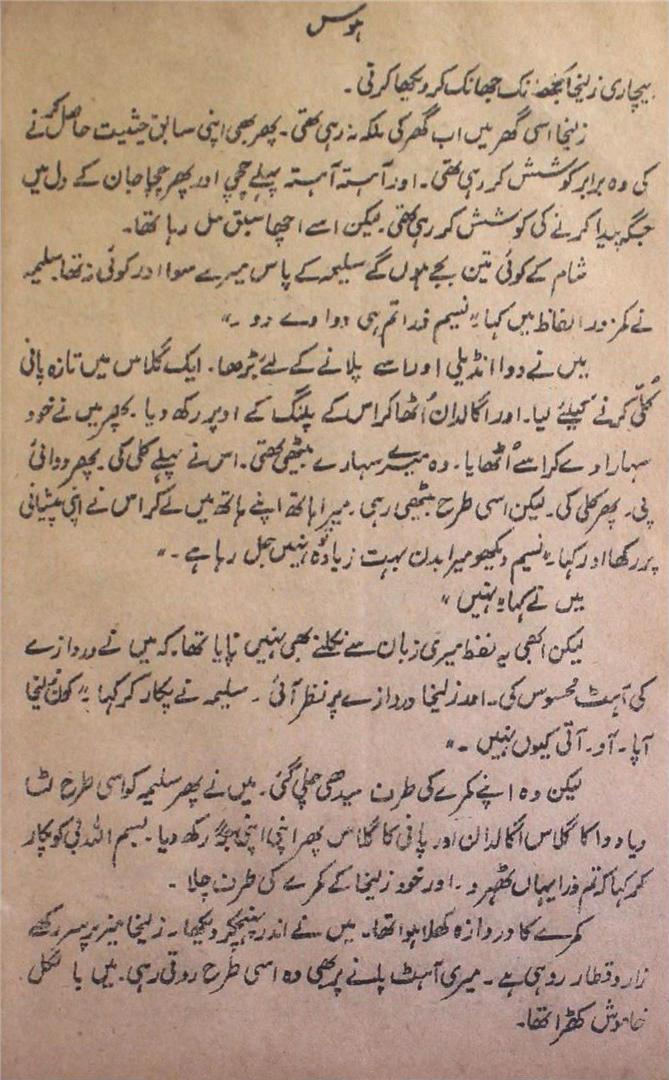 ہوس
بیچاری زلیخا مجھ تک جھانک کر دیکھا کرتی۔
زلیخا اسی گھر میں اب گھر کی ملکہ نہ رہی تھی۔ پھر بھی اپنی سابق حیثیت حاصل کرنے
کی وہ برابر کوشش کر رہی تھی۔ اور آہستہ آہستہ پہلے چچی اور پھر چچا جان کے دل میں
جگہ پیدا کرنے کی کوشش کر رہی تھی۔ لیکن اسے اچھا سبق مل رہا تھا۔
شام کے کوئی تین بجے ہوں گے سلیمہ کے پاس میرے سوا اور کوئی نہ تھا۔ سلیمہ
نے کمزور الفاظ میں کہا۔ "نسیم ذرا تم ہی دوا دے دو۔"
میں نے دوا انڈیلی اور اسے پلانے کے لئے بڑھا۔ ایک گلاس میں تازہ پانی
کُلّی کرنے کیلئے لیا۔ اور اگالدان اُٹھا کر اس کے پلنگ کے اوپر رکھ دیا۔ پھر میں نے خود
سہارا دے کر اسے اُٹھایا۔ وہ میرے سہارے بیٹھی تھی۔ اس نے پہلے کلی کی۔ پھر دوائی
پی۔ پھر کلی کی۔ لیکن اسی طرح بیٹھی رہی۔ میرا ہاتھ اپنے ہاتھ میں لے کر اس نے اپنی پیشانی
پر رکھا اور کہا۔ "نسیم دیکھو میرا بدن بہت زیادہ نہیں جل رہا ہے۔"
میں نے کہا "نہیں"
لیکن ابھی یہ لفظ میری زبان سے نکلنے بھی نہیں پایا تھا۔ کہ میں نے دروازے
کی آہٹ محسوس کی۔ اور زلیخا دروازے پر نظر آئی۔ سلیمہ نے پکار کر کہا۔ "کون زلیخا
آپا۔ آؤ۔ آتی کیوں نہیں۔"
لیکن وہ اپنے کمرے کی طرف سیدھی چلی گئی۔ میں نے پھر سلیمہ کو اسی طرح لٹا
دیا دوا کا گلاس اگالدان اور پانی کا گلاس پھر اپنی اپنی جگہ رکھ دیا۔ بسم اللہ بی کو پکار
کر کہا کہ تم ذرا یہاں ٹھہرو۔ اور خود زلیخا کے کمرے کی طرف چلا۔
کمرے کا دروازہ کھلا ہوا تھا۔ میں نے اندر پہنچکر دیکھا۔ زلیخا میز پر سر رکھے
زار و قطار رو رہی ہے۔ میری آہٹ پانے پر بھی وہ اسی طرح روتی رہی۔ میں بالکل
خاموش کھڑا تھا۔